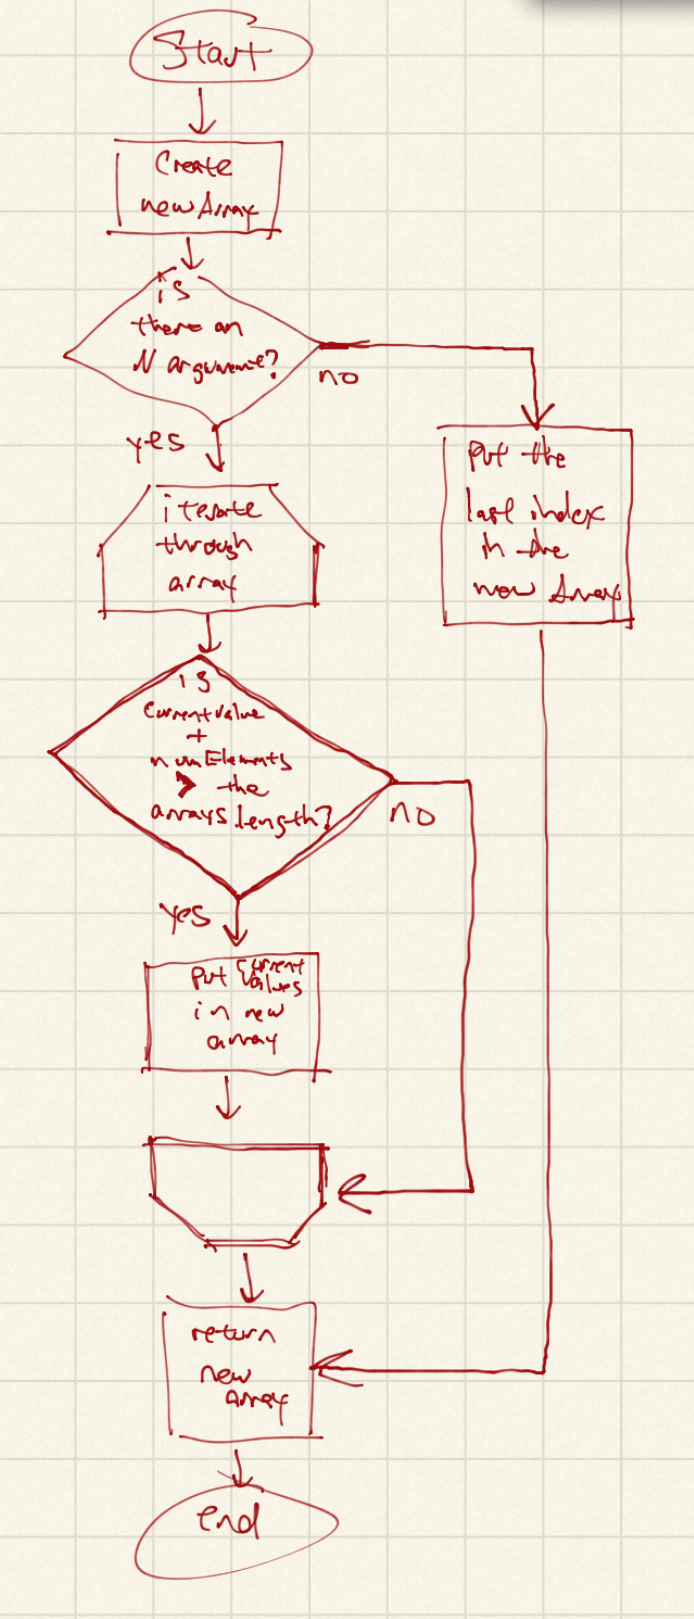 Start
Create
new Array
is
there an
N argument?
no
yes
put the
last index
in the
new Array
iterate
through
array
is
Currentvalue
+
numElements
> the
arrays length?
no
yes
put current
values
in new
array
return
new
Array
end